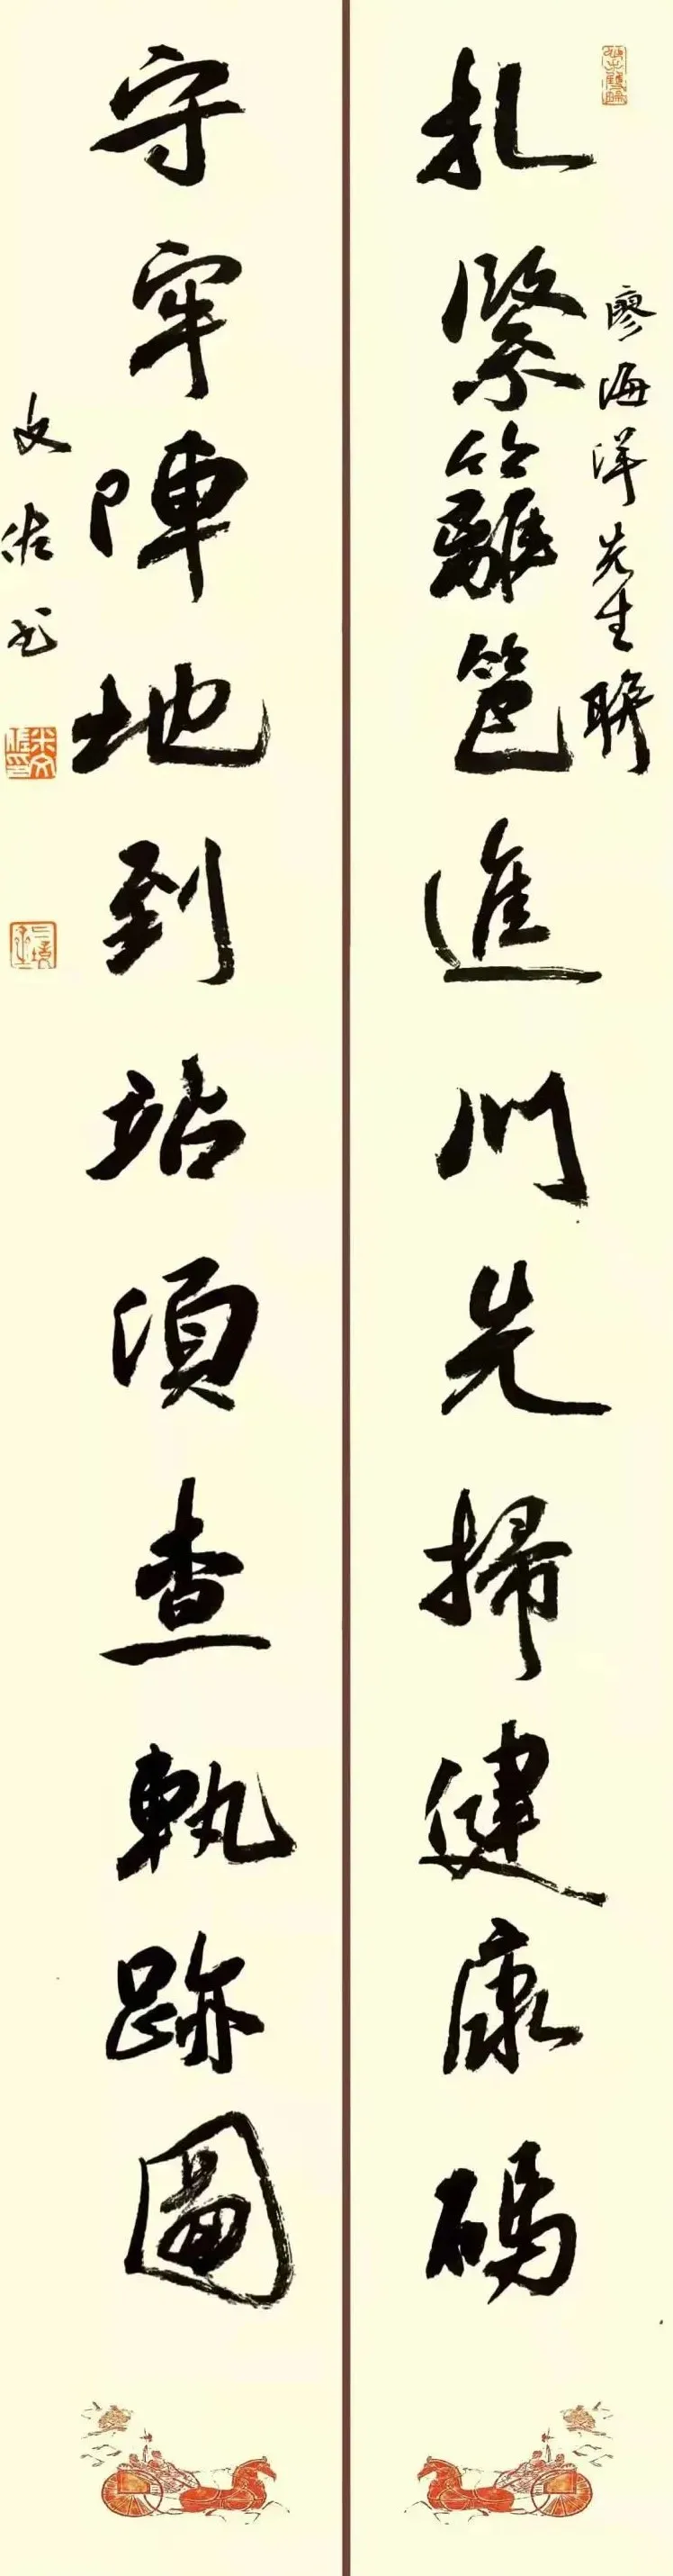 廖海洋先生聯
扎緊籬笆進门先掃健康碼
守牢陣地到站須查軌跡圖
文佐书
米文佐印